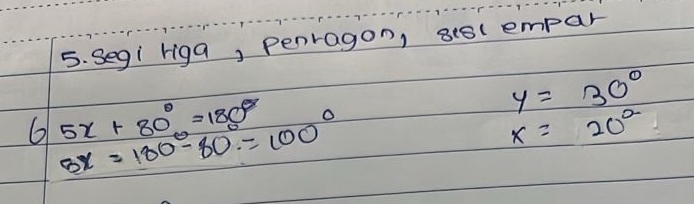 5. segi tiga, pentagon, sisi empat
6 5x + 80° = 180°
5x = 180° - 80. = 100°
y = 30°
x = 20°